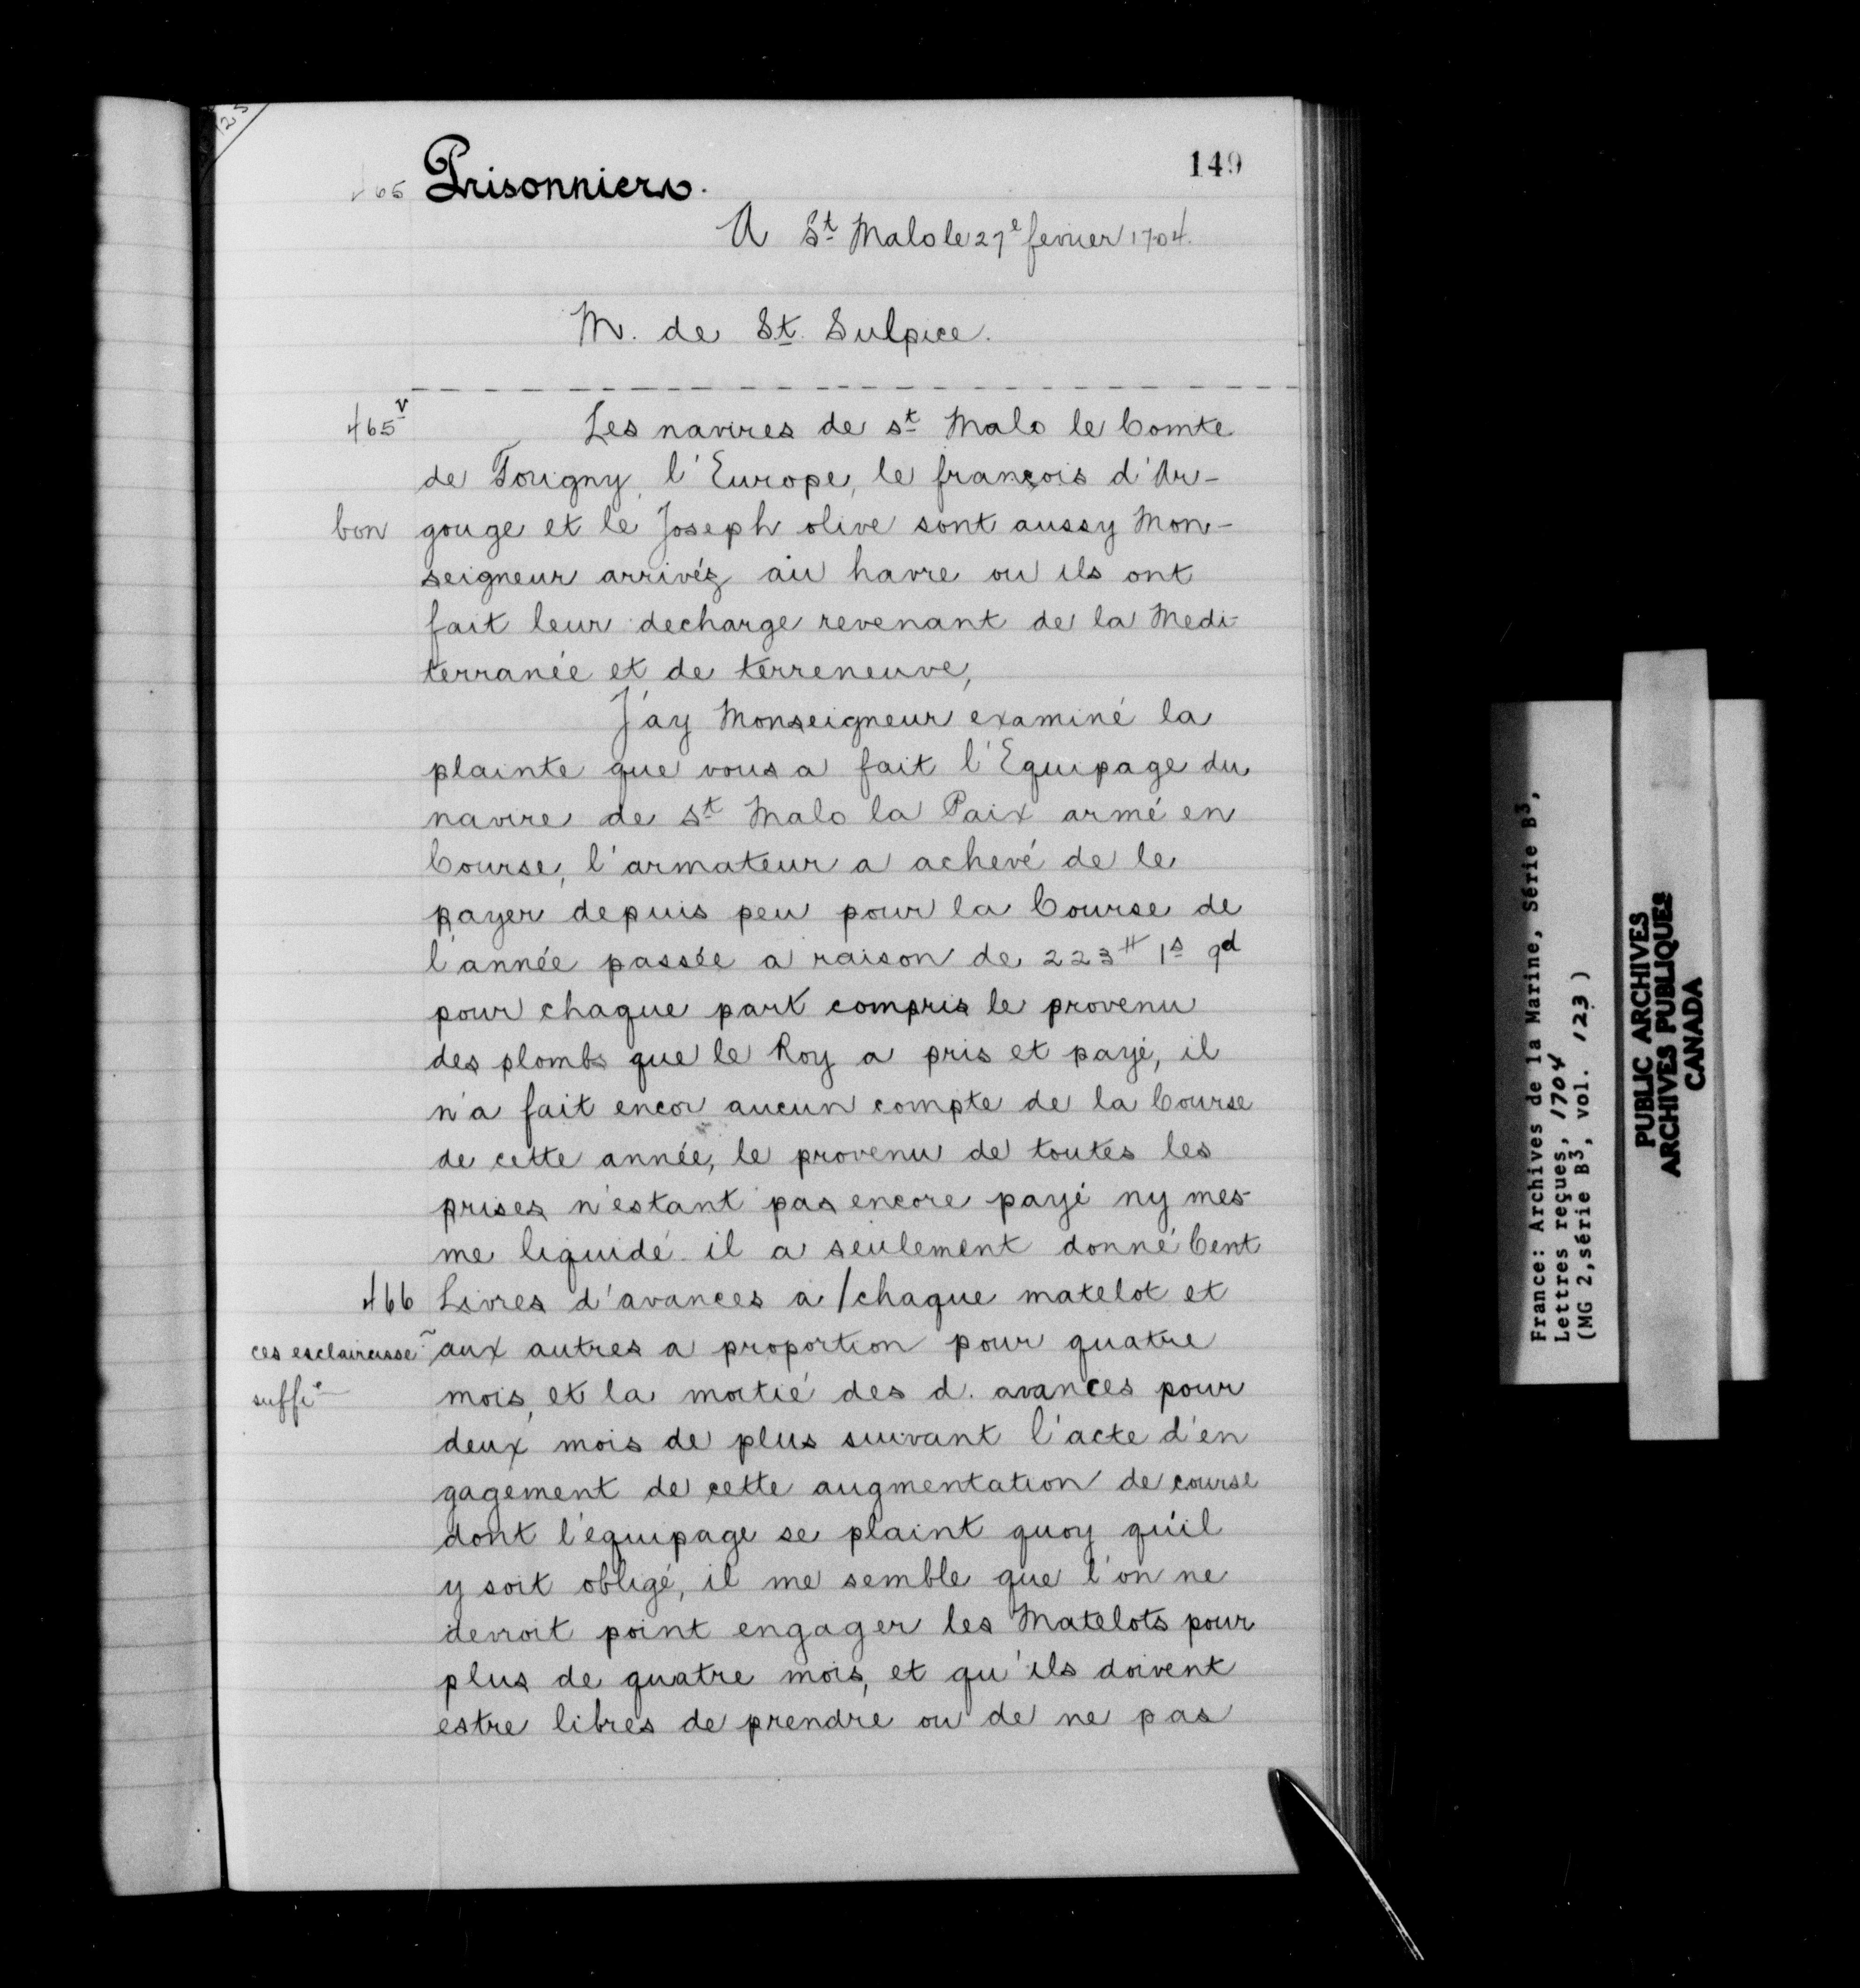 125
149
465 Prisonniers.
A St Malo le 27e fevrier 1704.
M. de St. Sulpice.
465v Les navires de st Malo le Comte
de Torigny, l'Europe, le françois d'Ar-
bon gouge et le Joseph olive sont aussy Mon-
seigneur arrivéz au havre ou ils ont
fait leur decharge revenant de la Medi-
terranée et de terreneuve,
J'ay Monseigneur examiné la
plainte que vous a fait l'Equipage du
navire de st Malo la Paix armé en
Course, l'armateur a achevé de le
payer depuis peu pour la Course de
l'année passée a raison de 223# 1s 9d
pour chaque part compris le provenu
des plombs que le Roy a pris et payé, il
n'a fait encor aucun compte de la Course
de cette année, le provenu de toutes les
prises n'estant pas encore payé ny mes-
me liquidé il a seulement donné Cent
466 Livres d'avances a / chaque matelot et
ces esclaircisse~ aux autres a proportion pour quatre
suffi e mois, et la moitié des d. avances pour
deux mois de plus suivant l'acte d'en
gagement de cette augmentation de course
dont l'equipage se plaint quoy qu'il
y soit obligé, il me semble que l'on ne
devroit point engager les Matelots pour
plus de quatre mois, et qu'ils doivent
estre libres de prendre ou de ne pas
France: Archives de la Marine, Série B3,
Lettres reçues, 1704
(MG 2, série B3, vol. 123)
PUBLIC ARCHIVES
ARCHIVES PUBLIQUES
CANADA